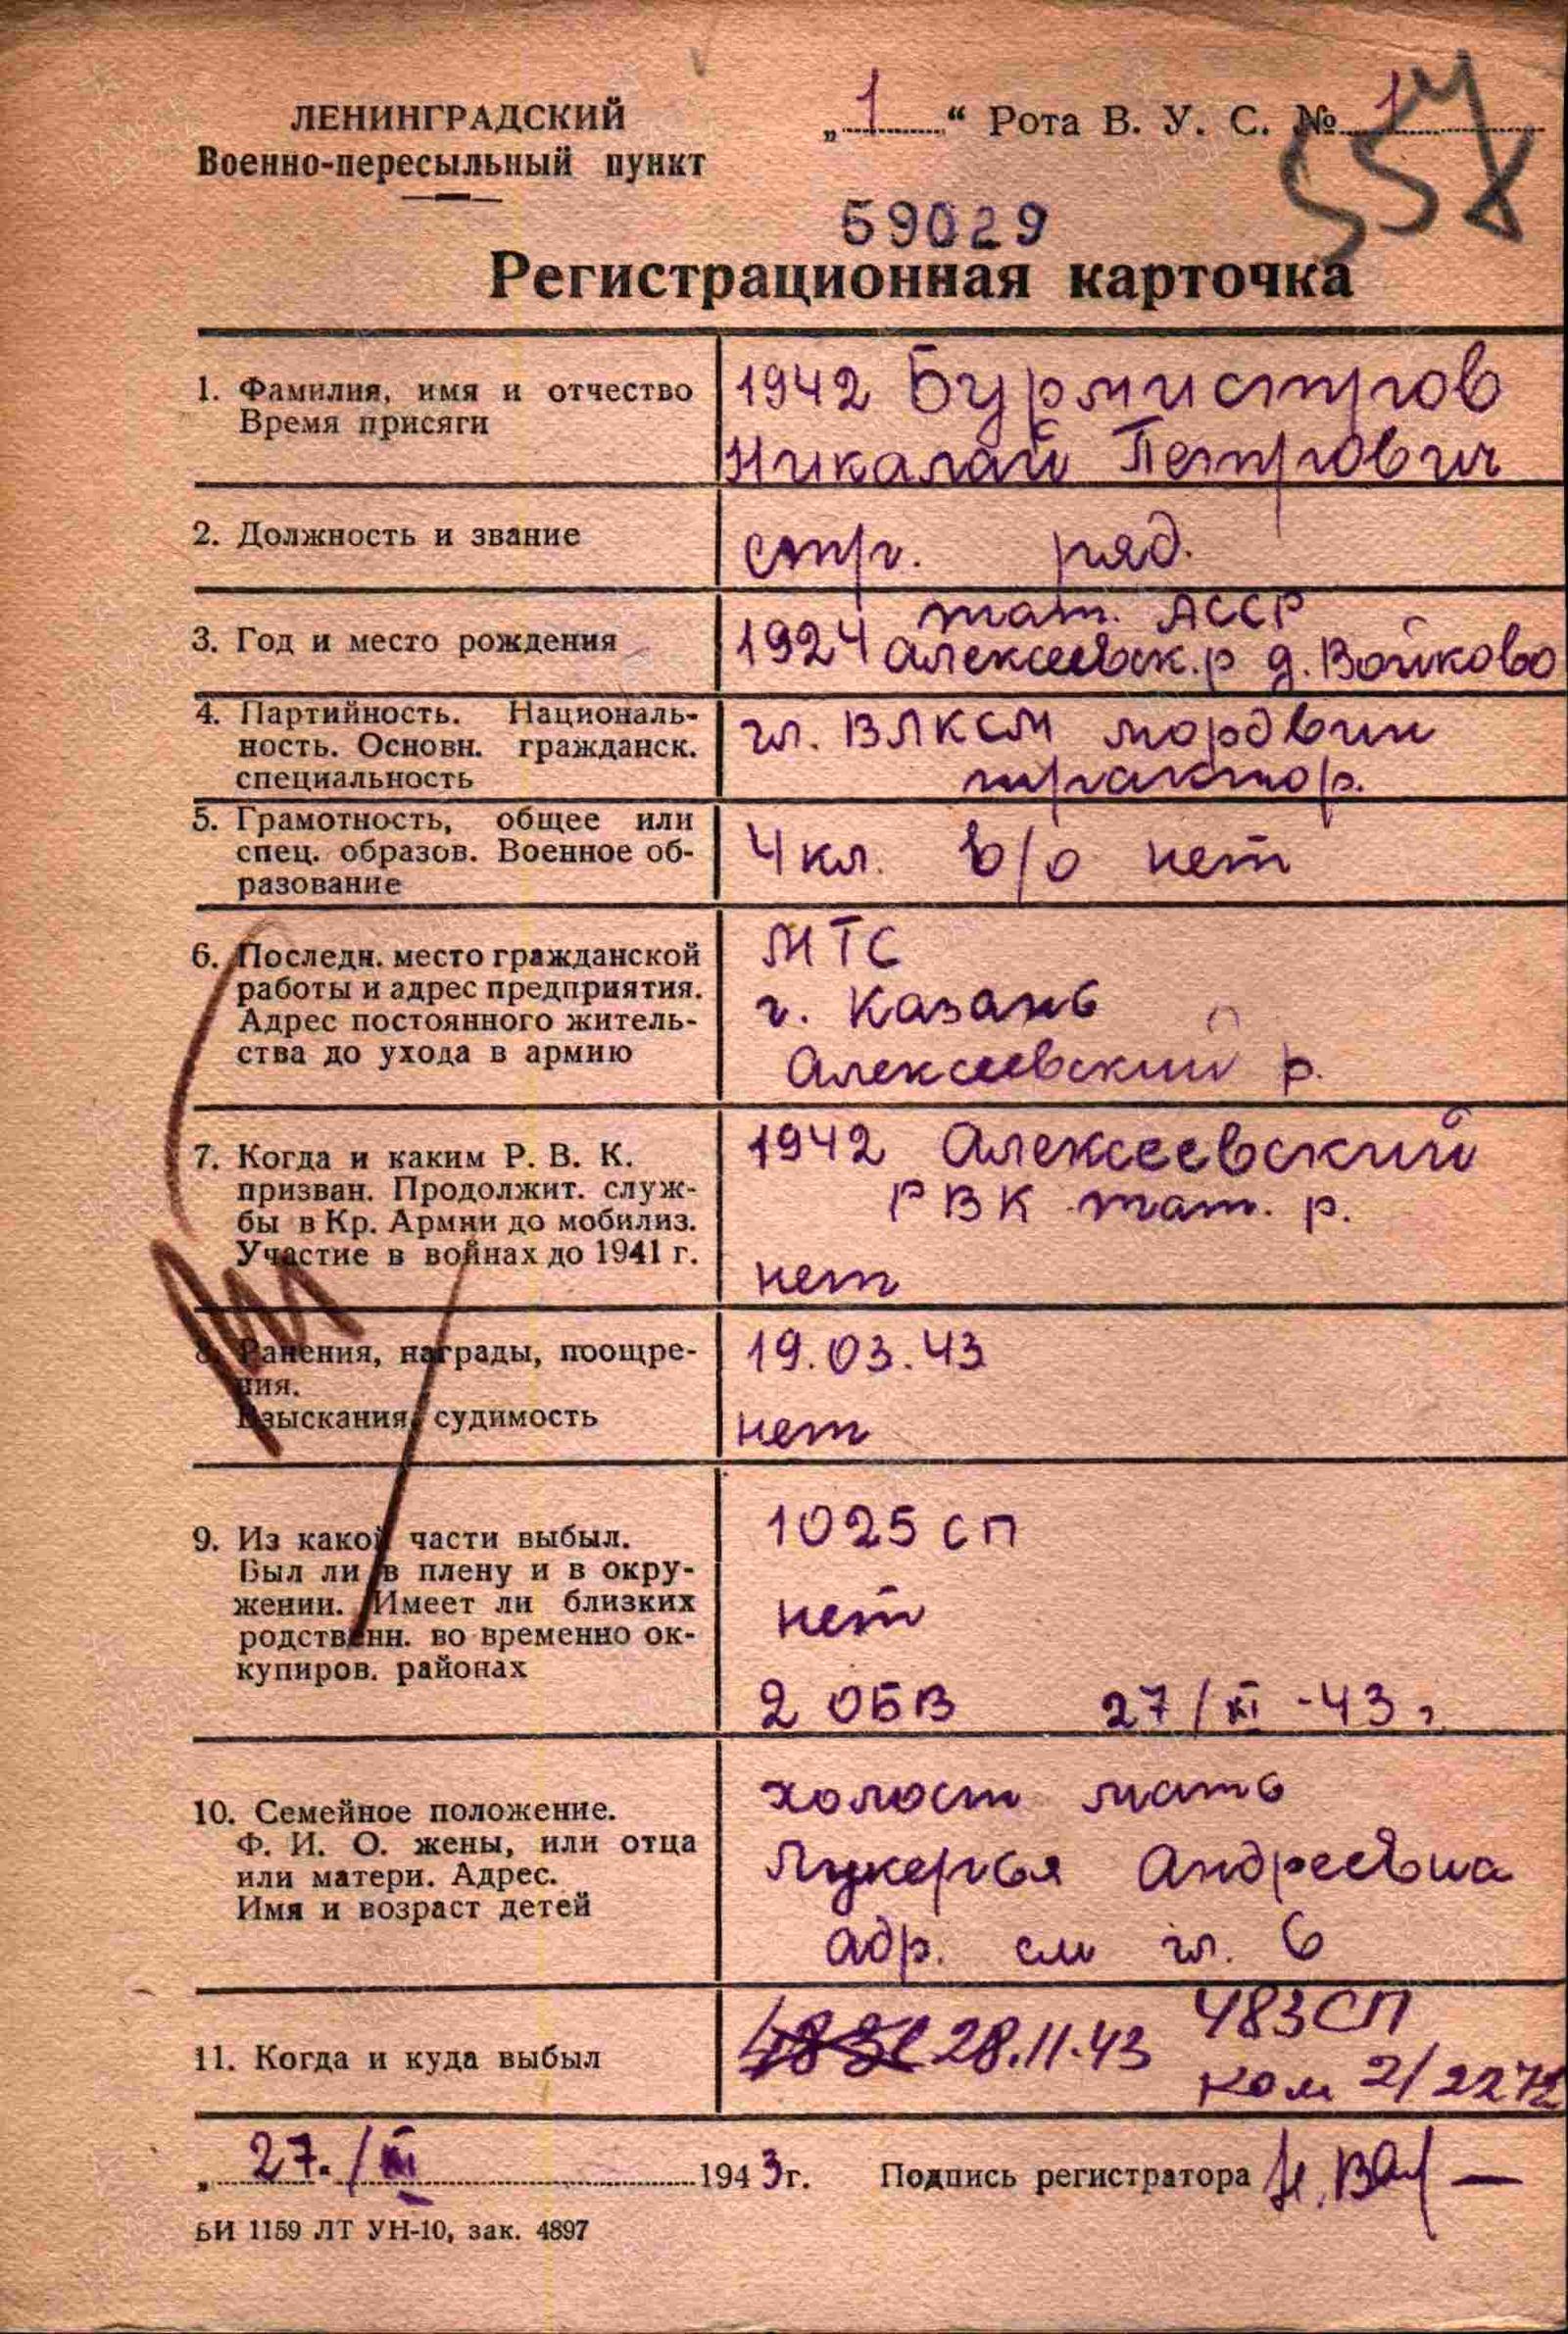 ЛЕНИНГРАДСКИЙ
Военно-пересыльный пункт
„1“ Рота В. У. С. № 1
59029
Регистрационная карточка
1. Фамилия, имя и отчество
Время присяги
1942 Бурмистров
Никалай Петрович
2. Должность и звание
стр. ряд.
3. Год и место рождения
тат. АССР
1924 Алексеевск. р д. Войково
4. Партийность. Националь-
ность. Основн. гражданск.
специальность
чл. ВЛКСМ мордвин
трактор.
5. Грамотность, общее или
спец. образов. Военное об-
разование
4 кл. в/о нет
6. Последн. место гражданской
работы и адрес предприятия.
Адрес постоянного житель-
ства до ухода в армию
МТС
г. Казань
Алексеевский р.
7. Когда и каким Р. В. К.
призван. Продолжит. служ-
бы в Кр. Армии до мобилиз.
Участие в войнах до 1941 г.
1942 Алексеевский
РВК тат. р.
нет
8. Ранения, награды, поощре-
ния.
Взыскания, судимость
19.03.43
нет
9. Из какой части выбыл.
Был ли в плену и в окру-
жении. Имеет ли близких
родственн. во временно ок-
купиров. районах
1025 сп
нет
2 ОБВ 27/XI -43 г
10. Семейное положение.
Ф. И. О. жены, или отца
или матери. Адрес.
Имя и возраст детей
холост мать
Лукерья Андреевна
адр. см гл. 6
11. Когда и куда выбыл
28.11.43 483 СП
ком 2/2272
„27./XI 1943 г. Подпись регистратора
БИ 1159 ЛТ УН-10, зак. 4897